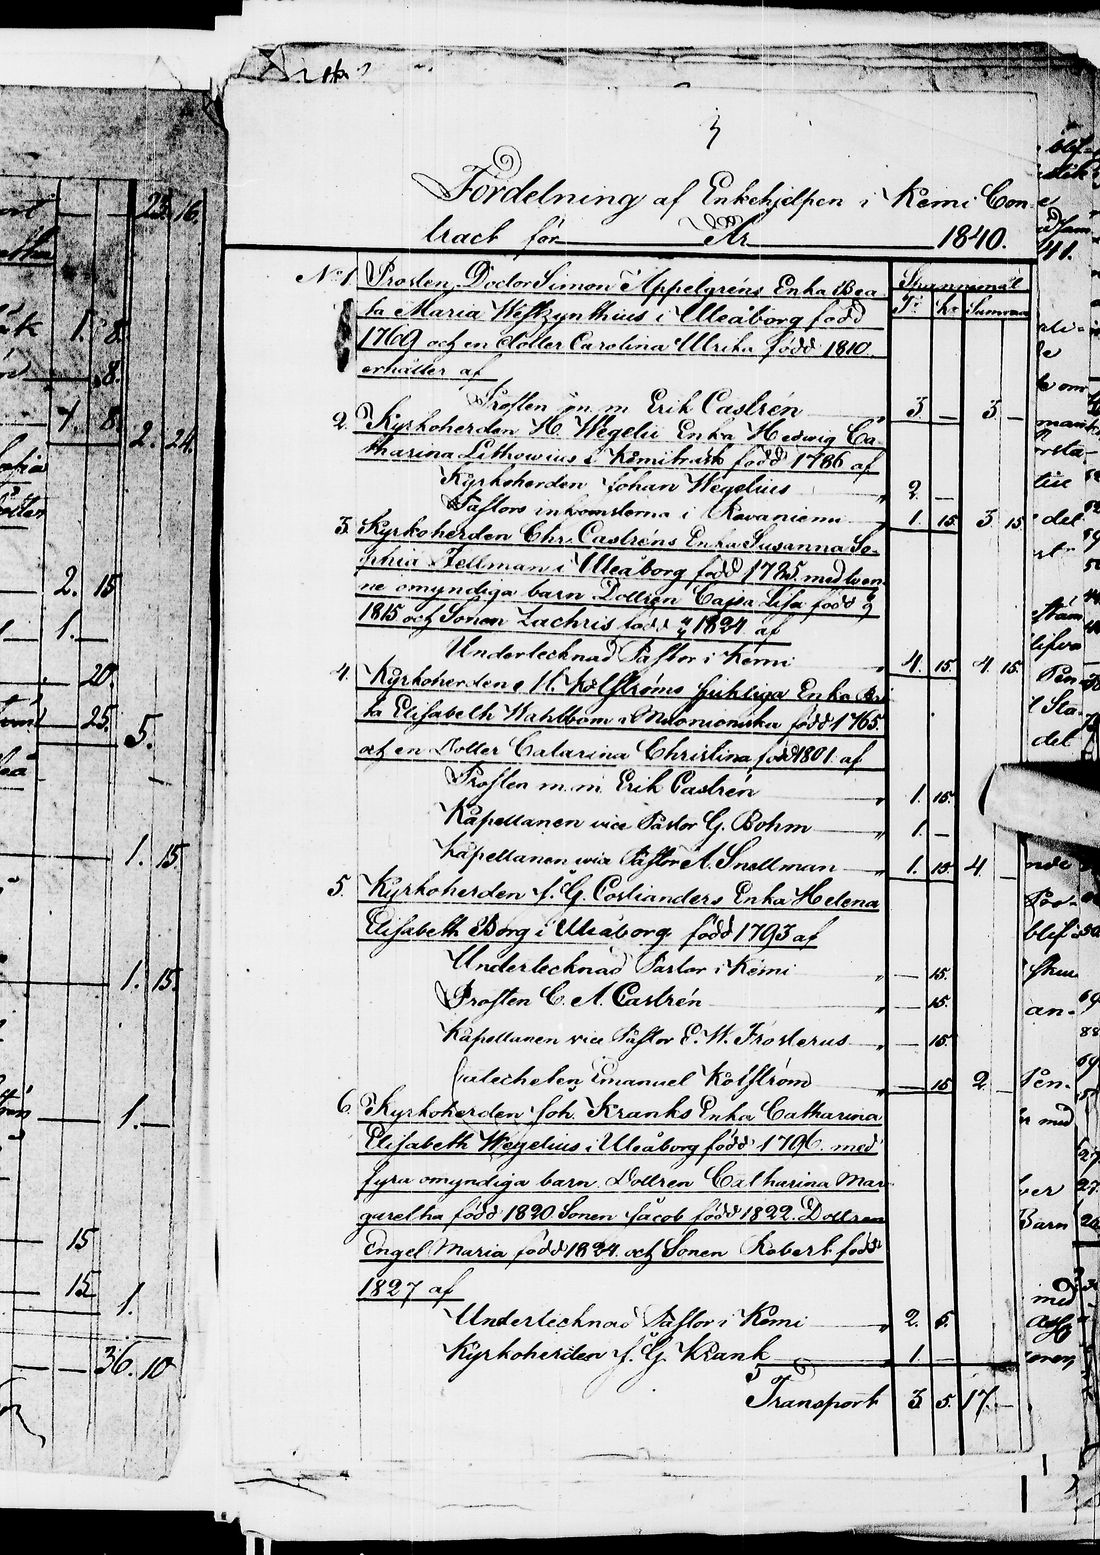 3
Fördelning af Enkehjelpen i Kemi Con-
tract för År 1840.
Spannemål
Tr kr Summa
No 1. Prosten, Doctor Simon Appelgréns Enka Bea-
ta Maria Westzynthius i Uleåborg född
1769 och en dotter Carolina Ulrika född 1810.
erhåller af
Prosten m m Erik Castrén " 3. — 3 —
2. Kyrkoherden H Wegelii Enka Hedwig Ca-
tharina Lithowius i Kemiträsk född 1786 af
Kyrkoherden Johan Wegelius " 2. —
Pastors inkomsterna i Rovaniemi " 1. 15. 3 15
3. Kyrkoherden Chr. Castréns Enka Susanna So-
phia Fellman i Uleåborg född 1785. med tven-
ne omyndiga barn Dottren Cajsa Lisa född
1815 och Sonen Zachris född 1824. af
Undertecknad Pastor i Kemi " 4. 15. 4 15.
4. Kyrkoherden H. Kolströms sjukliga Enka
ta Elisabeth Wahlbom i Muonioniska född 1765.
och en Dotter Catarina Christina född 1801. af
Prosten m. m. Erik Castrén " 1. 15.
Kapellanen vice Pastor G. Bohm " 1. —
Kapellanen vice Pastor A. Snellman " 1. 15. 4
5. Kyrkoherden J. G. Costianders Enka Helena
Elisabeth Borg i Uleåborg född 1793 af
Undertecknad Pastor i Kemi " — 15.
Prosten C. A. Castrén " — 15.
Kapellanen vice Pastor E. W. Frosterus " — 15.
Catecheten Emanuel Kolström " — 15 2
6. Kyrkoherden Joh. Kranks Enka Catharina
Elisabeth Wegelius i Uleåborg född 1796. med
fyra omyndiga barn. Dottren Catharina Mar-
garetha född 1820 Sonen Jacob född 1822. Dottren
Engel Maria född 1824. och Sonen Robert född
1827 af
Undertecknad Pastor i Kemi " 2. 5.
Kyrkoherden J. G. Krank 1. —
Transport 3. 5. 17. —
23. 16.
1. 8.
8.
1 8.
2. 24.
2. 15
1. —
20.
25.
5.
1. 15.
1. 15.
1. —
15
15
1.
36. 10